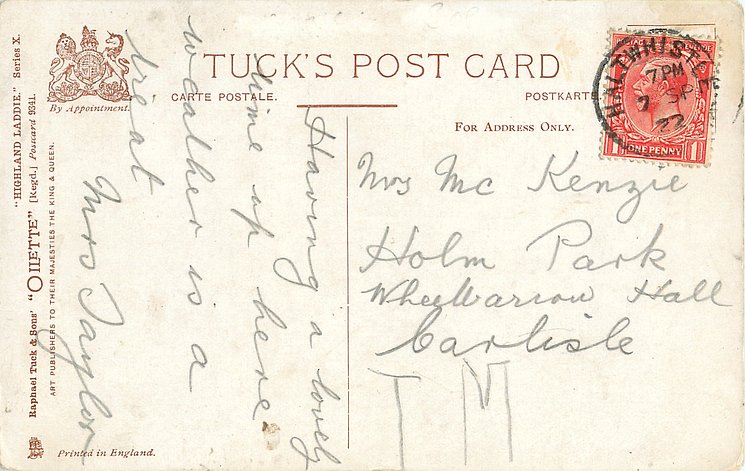 TUCK'S POST CARD
CARTE POSTALE. POSTKARTE.
By Appointment.
FOR ADDRESS ONLY.
HALTWHISTLE
7 PM
7 SP
22
1 ONE PENNY 1
Mrs Mc Kenzie
Holm Park
Wheelbarrow Hall
Carlisle
T M
Having a lovely
time up here.
weather is a
treat
Mrs Taylor
"HIGHLAND LADDIE." Series X.
Raphael Tuck & Sons' "OILETTE" [Regd.] Postcard 9341.
ART PUBLISHERS TO THEIR MAJESTIES THE KING & QUEEN.
Printed in England.